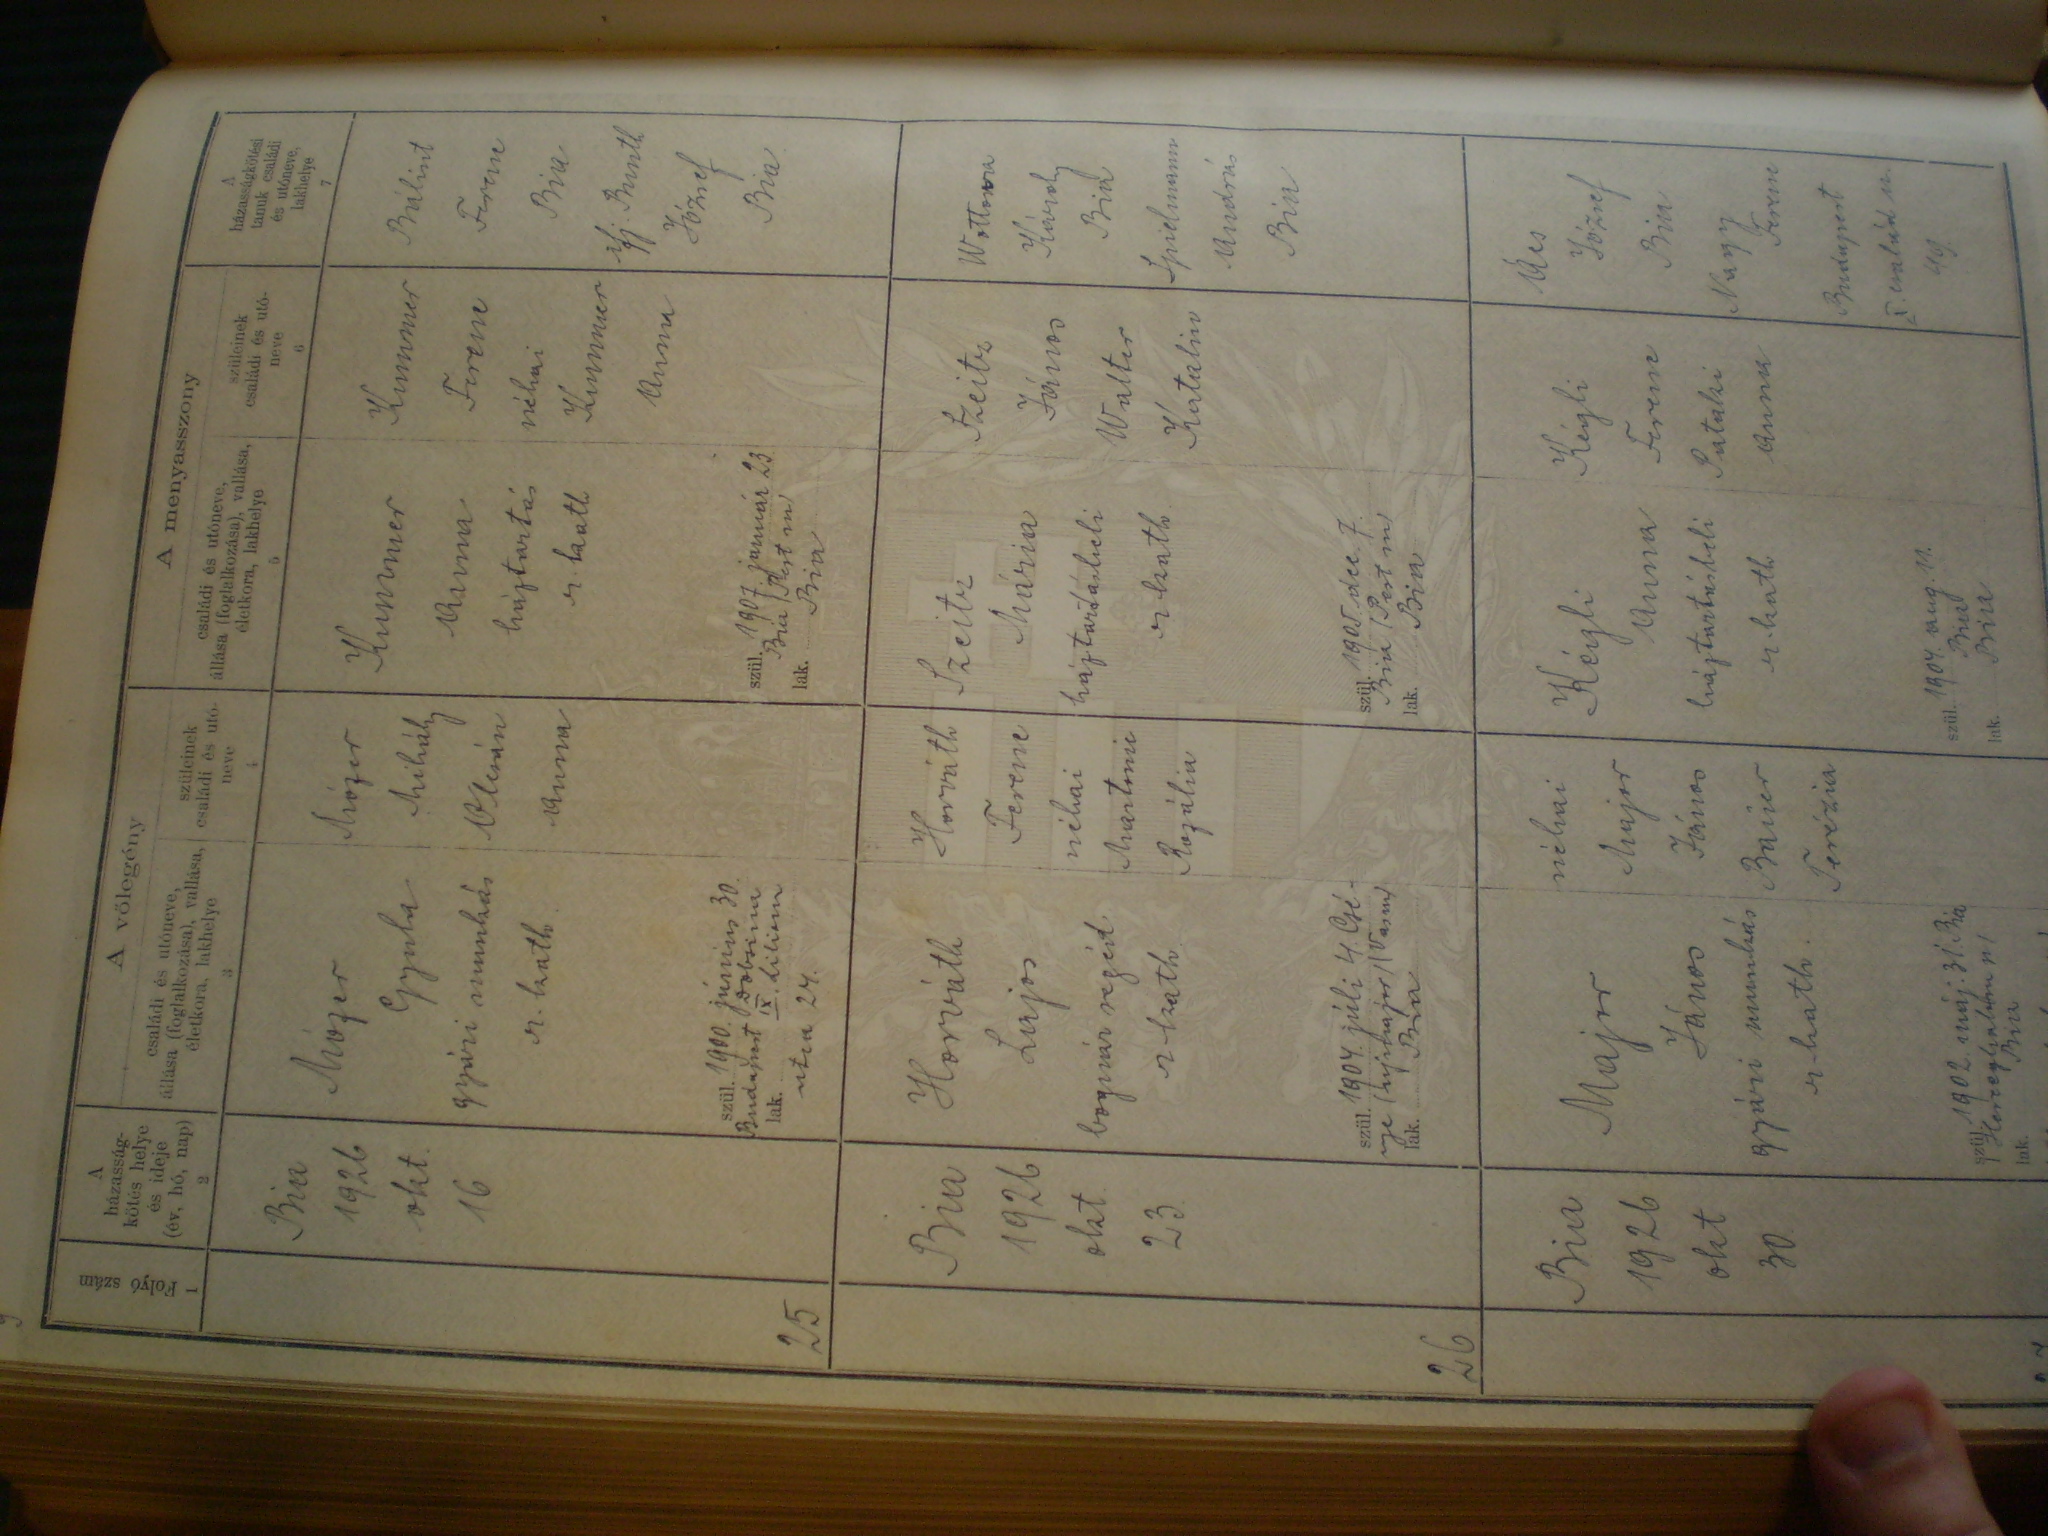 1
Folyó szám
2
A
házasság-
kötés helye
és ideje
(év, hó, nap)
A vőlegény
3
családi és utóneve,
állása (foglalkozása), vallása,
életkora, lakhelye
4
szüleinek
családi és utó-
neve
A menyasszony
5
családi és utóneve,
állása (foglalkozása), vallása,
életkora, lakhelye
6
szüleinek
családi és utó-
neve
A
házasságkötési
tanuk családi
és utóneve,
lakhelye
7
25
Bia
1926
okt.
16
Mózer
Gyula
gyári munkás
r. kath.
szül. 1900. június 30.
Budapest Dobsina
lak. IX. Liliom
utca 24.
Mózer
Mihály
Anna
Kummer
Anna
háztartás
r. kath
szül. 1907. január 23
Bia (Pest m)
lak. Bia
Kummer
Ferenc
néhai
Kummer
Anna
Bálint
Ferenc
Bia
ifj.
József
Bia
26
Bia
1926
okt.
23.
Horváth
Lajos
bognár segéd
r kath
szül. 1904. júli 4.
lak. Bia
Horváth
Ferenc
néhai
Martonic
Rozália
Szeitz
Mária
háztartásbeli
r kath
szül. 1905 dec. 7.
Bia (Pest m)
lak. Bia
Szeitz
János
Walter
Katalin
Károly
Bia
Spielmann
András
Bia
Bia
1926
okt
30.
Major
János
gyári munkás
r kath.
szül. 1902. máj. 31. Bia
Herceghalom
lak. Bia
néhai
Major
János
Bauer
Terézia
Kégli
Anna
háztartásbeli
r. kath
szül. 1904. aug. 11.
Bia
lak. Bia
Kégli
Ferenc
Pataki
Anna
Ács
József
Bia
Nagy
Ferenc
Budapest
49.